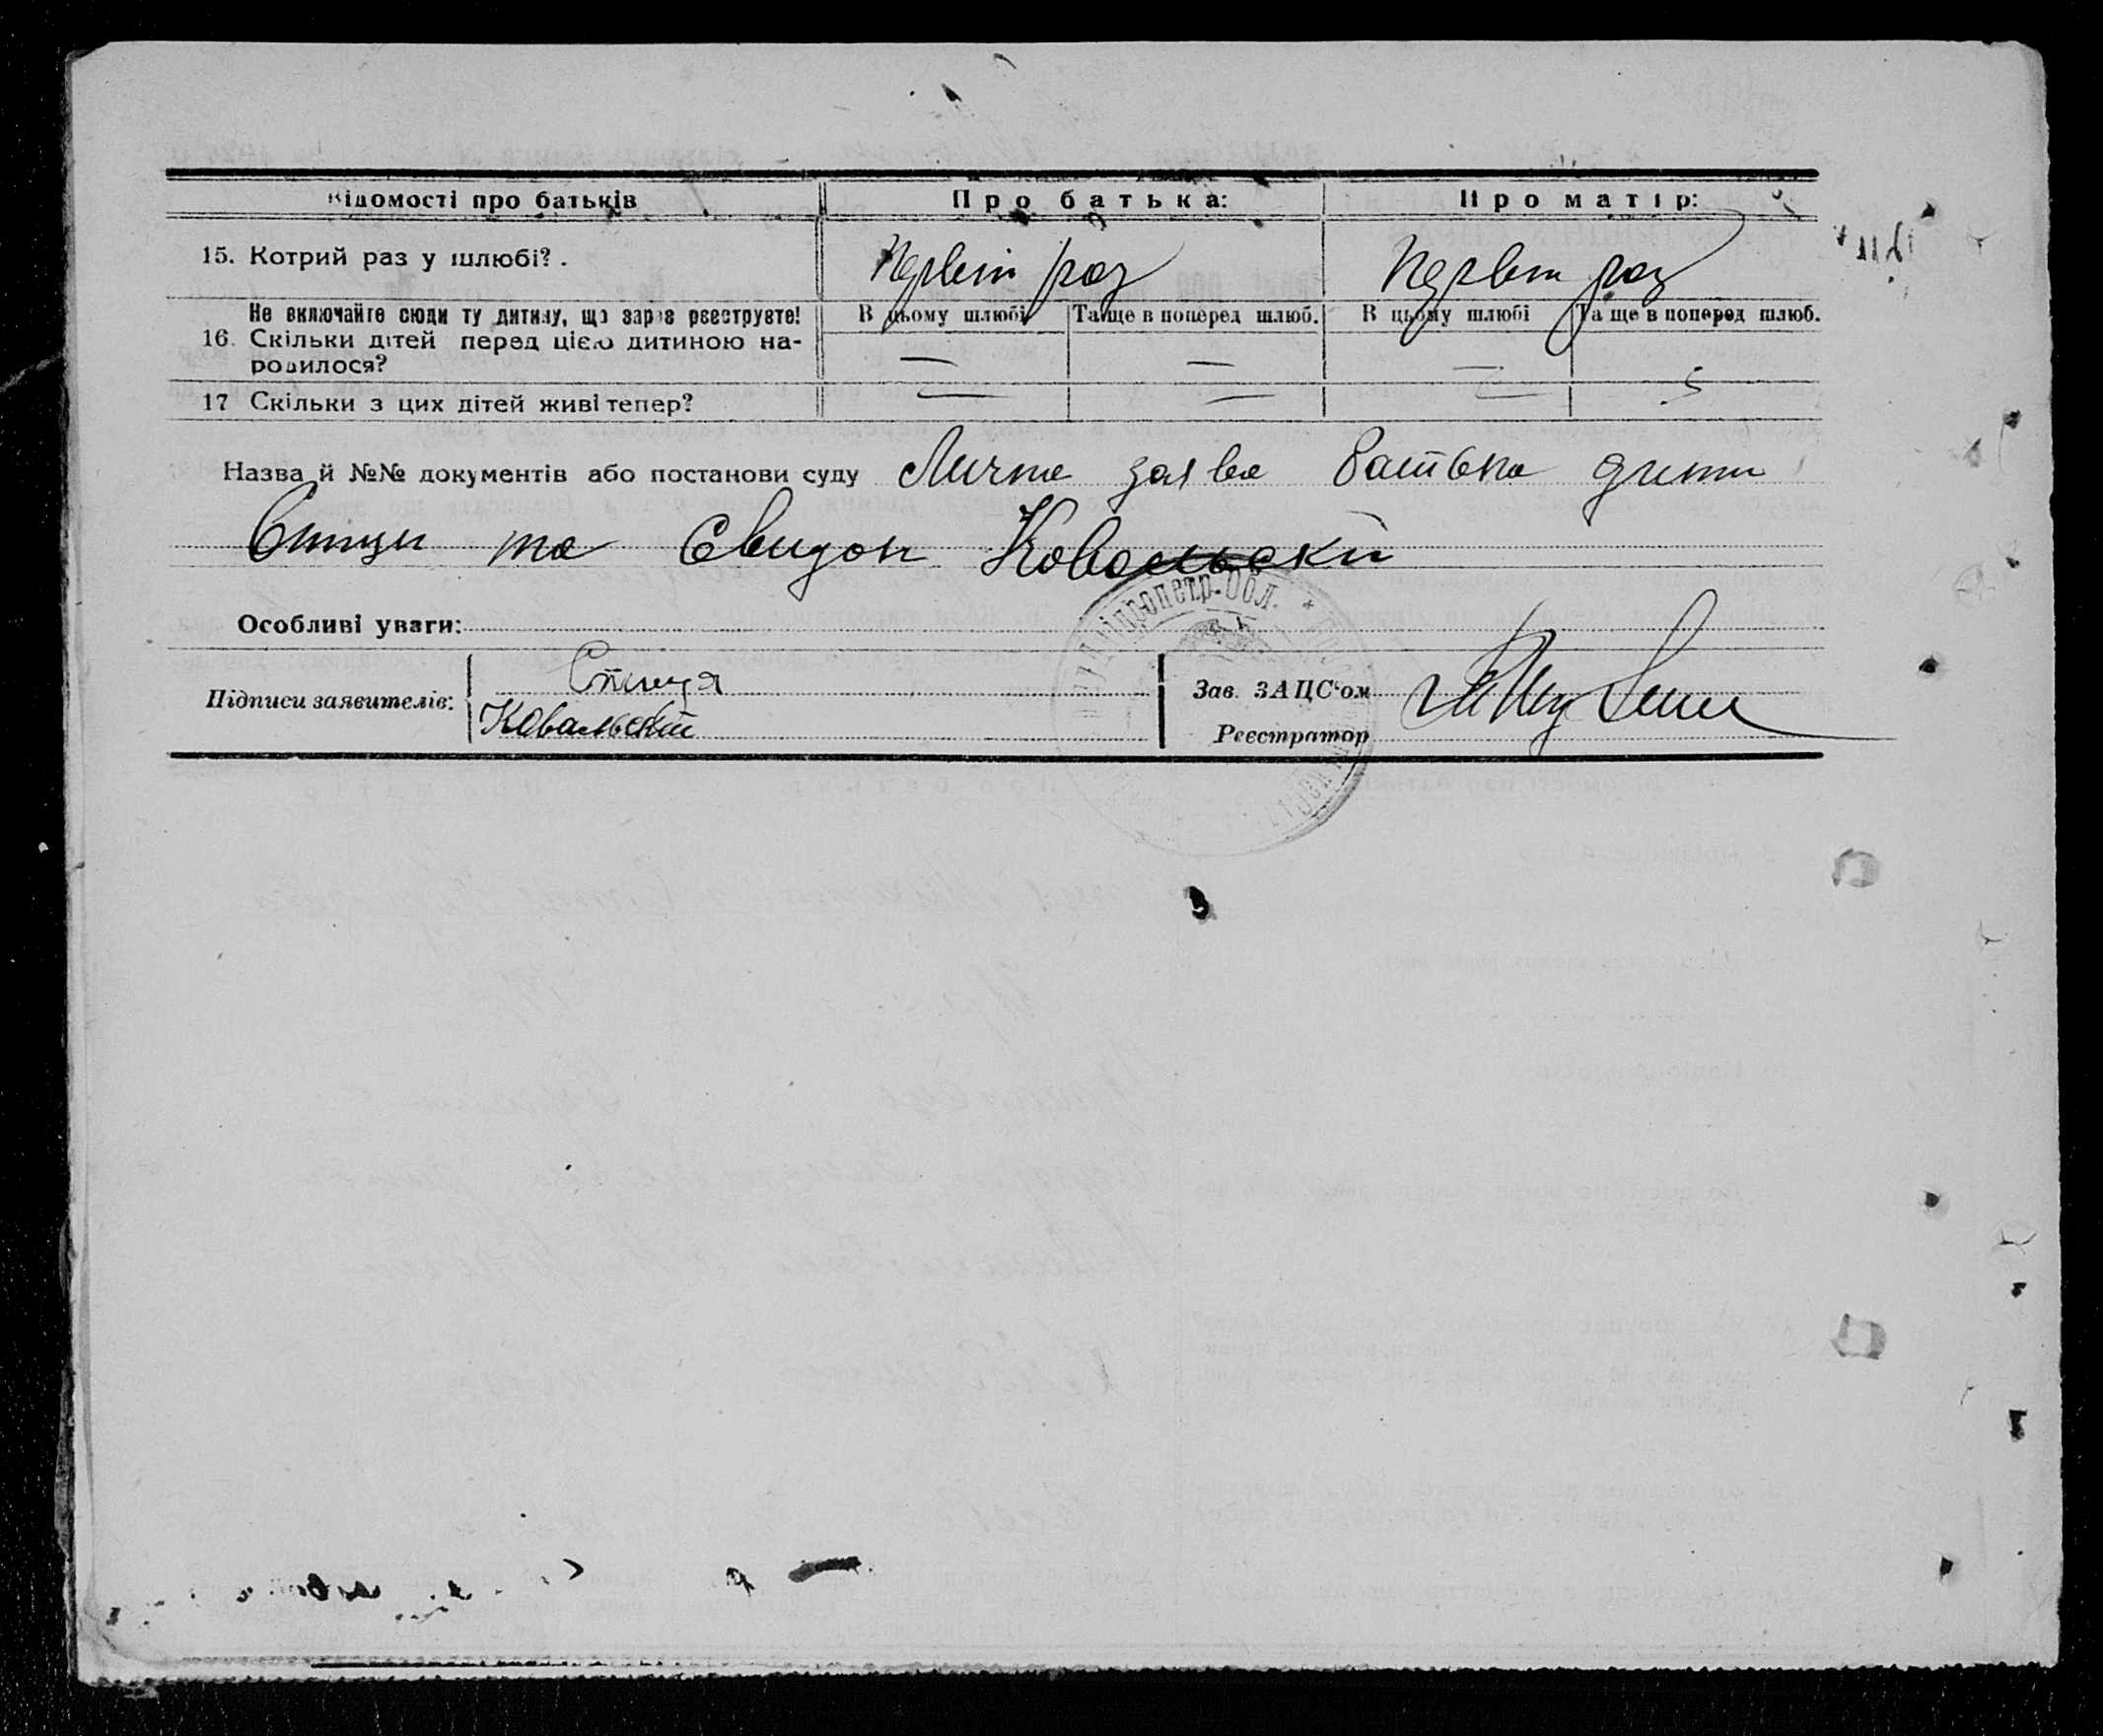 Відомості про батьків Про батька: Про матір:
15. Котрий раз у шлюбі? . Первий раз Первий раз
Не включайте сюди ту дитину, що зараз реєструєте! В цьому шлюбі Та ще в поперед шлюб. В цьому шлюбі Та ще в поперед шлюб.
16. Скільки дітей перед цією дитиною на-
родилося? — — —
17 Скільки з цих дітей живі тепер? — — —
Назва й №№ документів або постанови суду Лична заява батька дити
Єпиця та Свидок Ковальскій
Дніпропетр. Обл.
Особливі уваги:
Підписи заявителів: Спиця
Ковальскій
Зав. ЗАЦС'ом
Реєстратор